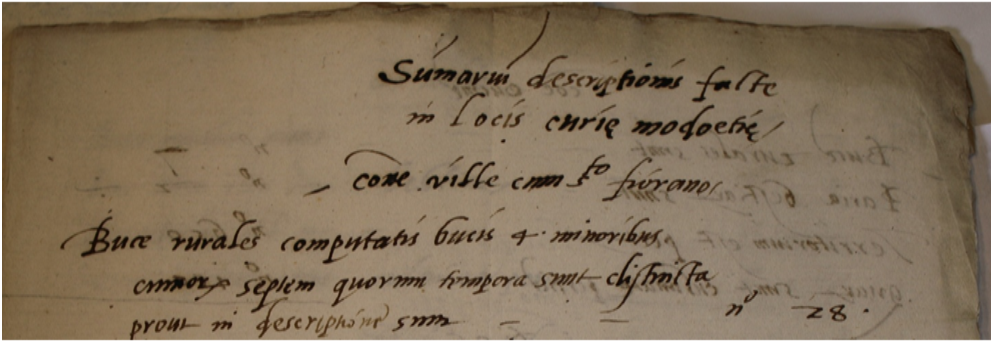 Sumariu descriptionis facte
in Locis curię modoetię
coñe ville cum sto fiorano
Buce rurales computatis bucis 4 minoribus
annor septem quorum tempora sunt distincta
prout in descriptione sunt
n° 28.